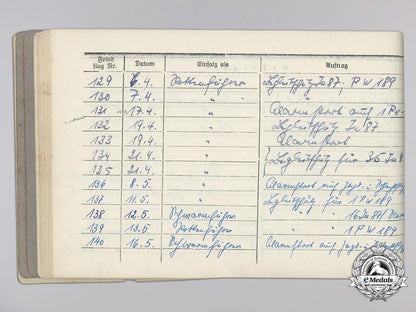 Feind flug Nr. Datum Einsatz als Auftrag
129 6.4. Rottenführer Begleitschutz Ju 87, FW 189
130 7.4. " "
131 17.4. " Alarmstart auf 1 Pe-
132 19.4. " Begleitschutz Ju 87
133 19.4. " Alarmstart
134 21.4. " Begleitschutz für 35 Ju
135 21.4. "
136 8.5. " Alarmstart auf Jagd-
137 11.5. " Begleitschutz für 1 FW 189
138 12.5. Schwarmführer " " 16 Ju 87
139 13.5. Rottenführer " " 1 FW 189
140 16.5. Schwarmführer Alarmstart auf Jagd-
eMedals